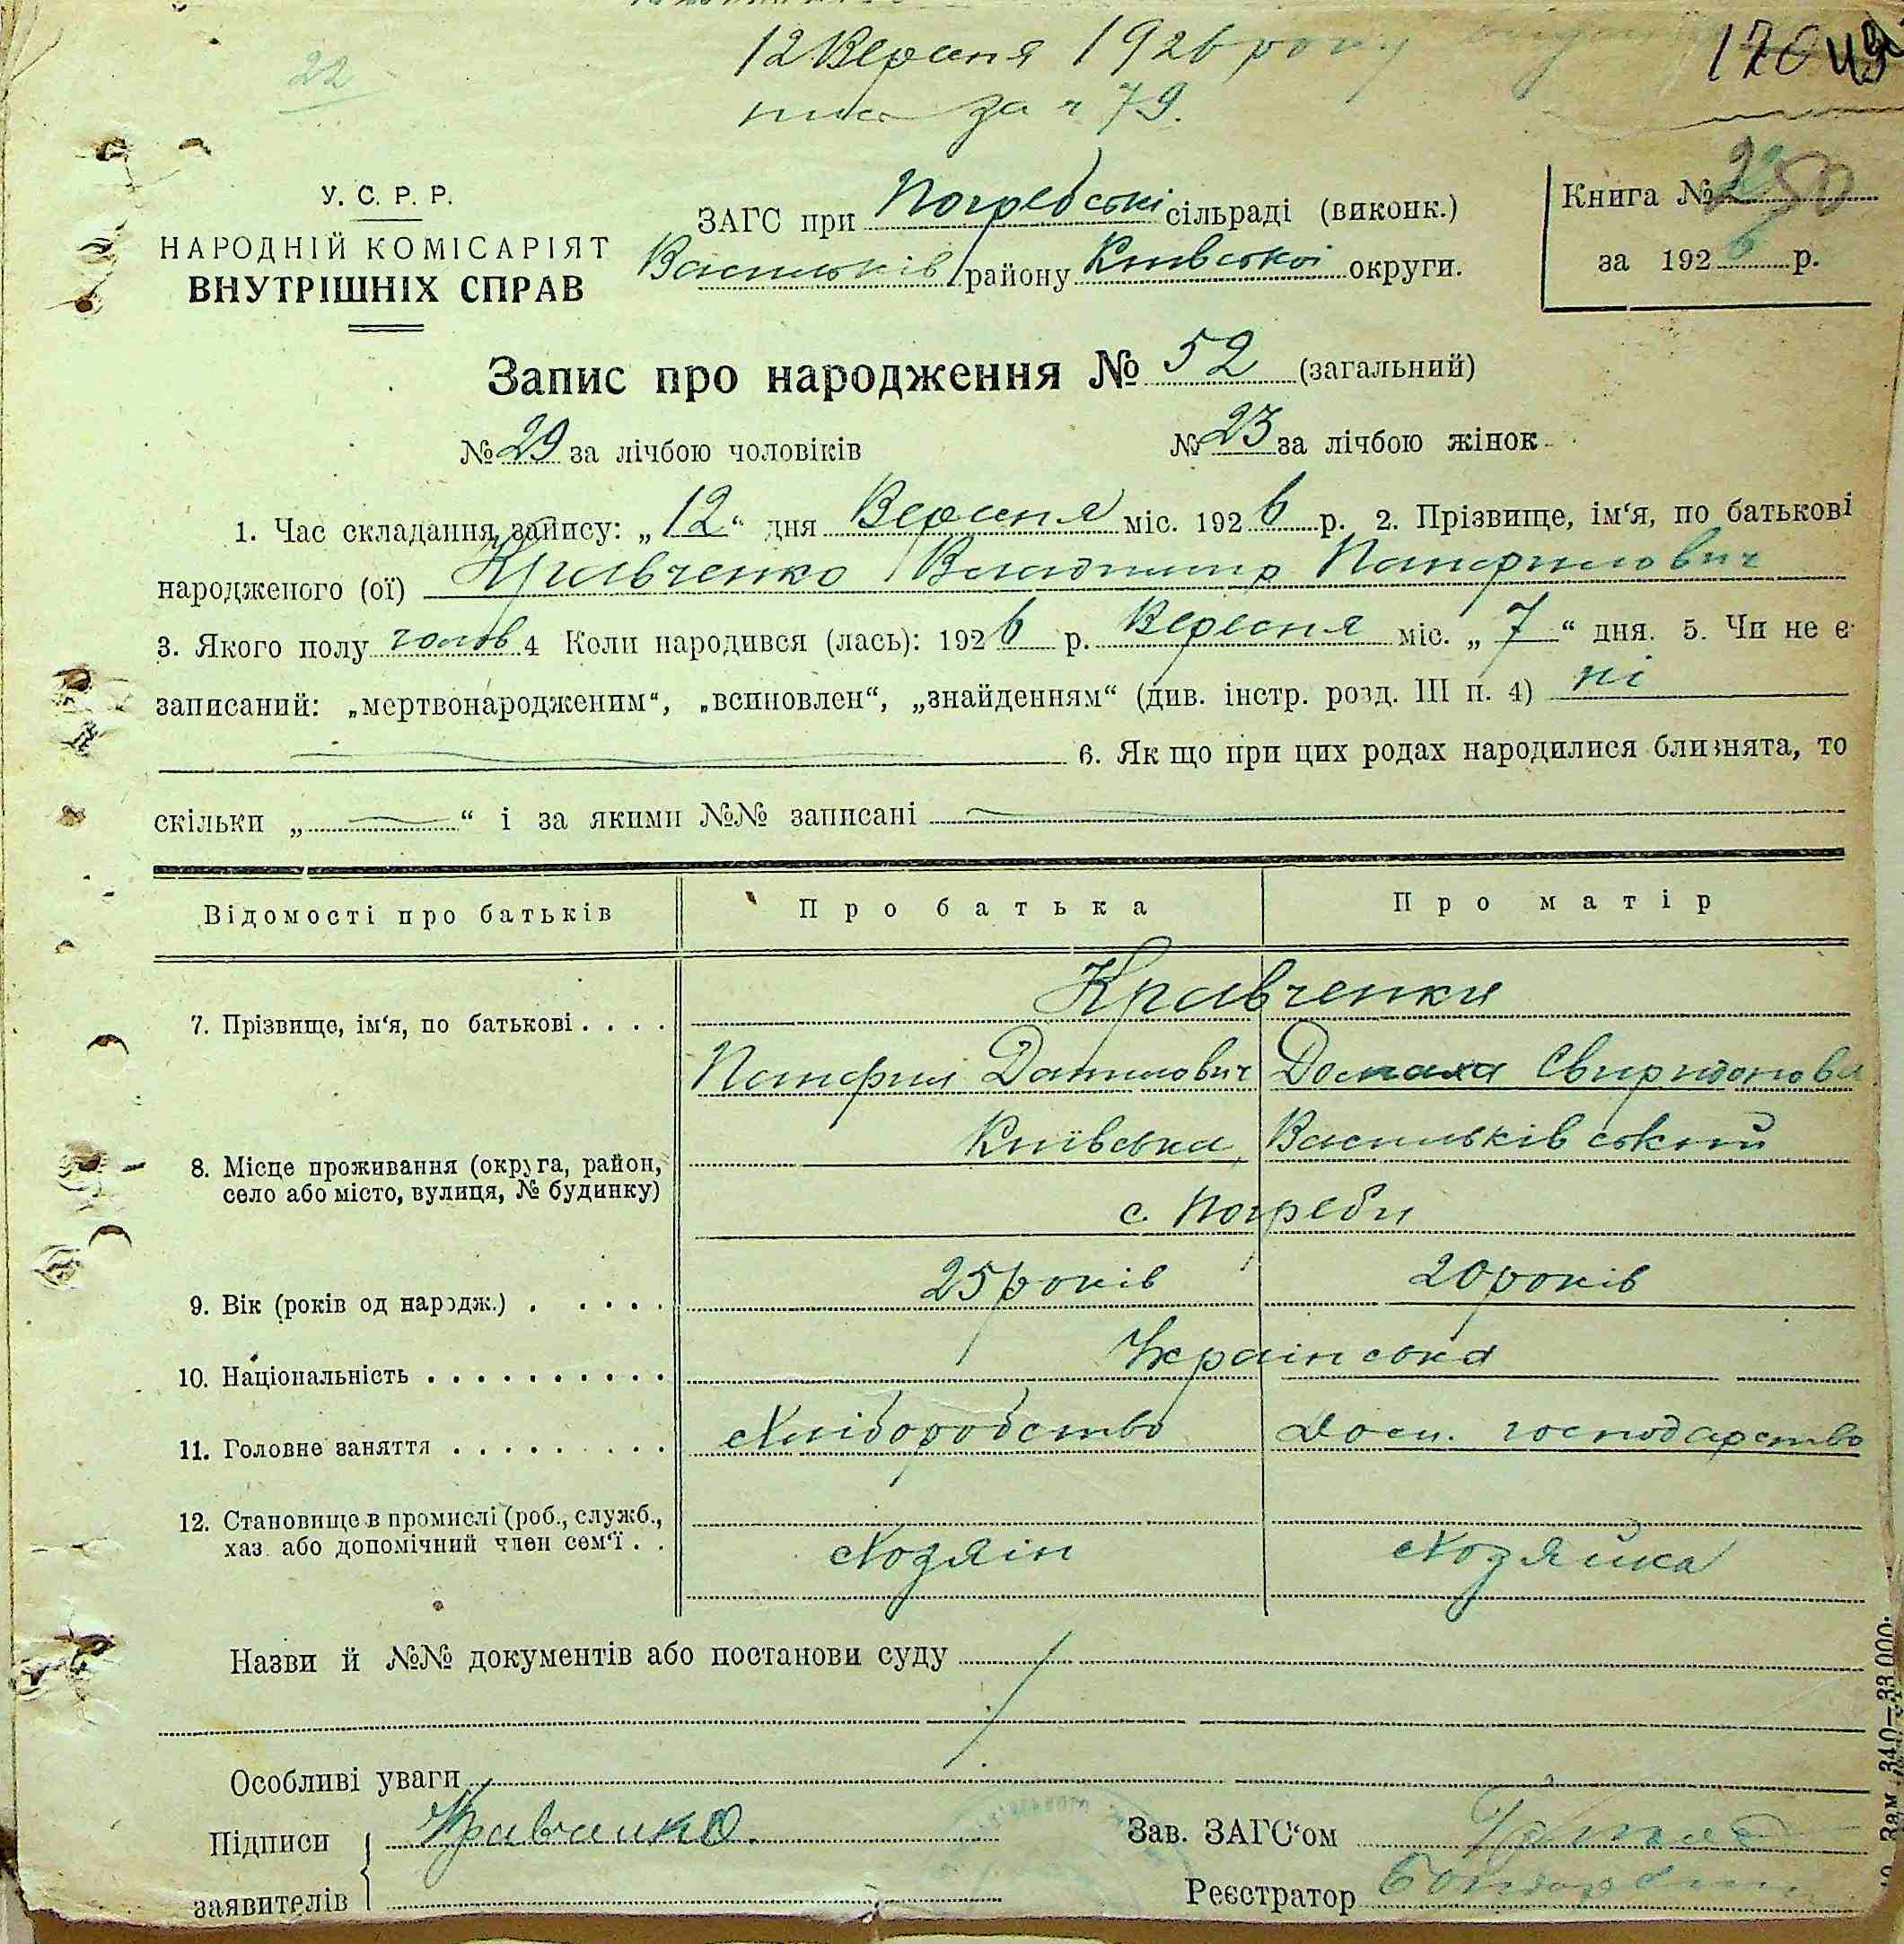 12 Вересня 1926 року
за ч 79.
170
22
У. С. Р. Р.
НАРОДНІЙ КОМІСАРІЯТ
ВНУТРІШНІХ СПРАВ
ЗАГС при Погребській сільраді (виконк.)
Васильків району Київської округи.
Книга № 250
за 1926 р.
Запис про народження № 52 (загальний)
№ 29 за лічбою чоловіків № 23 за лічбою жінок
1. Час складання запису: „12“ дня Вересня міс. 1926 р. 2. Прізвище, ім‘я, по батькові
народженого (ої) Кравченко Владимир Панфилович
3. Якого полу чолов 4 Коли народився (лась): 1926 р. Вересня міс. „7“ дня. 5. Чи не є
записаний: „мертвонародженим“, „всиновлен“, „знайденням“ (див. інстр. розд. III п. 4) ні
6. Як що при цих родах народилися близнята, то
скільки „ “ і за якими №№ записані
Відомості про батьків Про батька Про матір
Кравченки
7. Прізвище, ім‘я, по батькові . . . .
Панфил Данилович Домаха Свиридонова
Київська, Васильківський
8. Місце проживання (округа, район,
село або місто, вулиця, № будинку)
с. Погреби
9. Вік (років од народж.) . . . . . 25 років 20 років
10. Національність . . . . . . . . . . Українська
11. Головне заняття . . . . . . . . . Хліборобство Дом. господарство
12. Становище в промислі (роб., служб.,
хаз. або допомічний член сем‘ї . . Хозяїн Хозяйка
Назви й №№ документів або постанови суду
Особливі уваги
Підписи Кравченко.
заявителів
Зав. ЗАГС‘ом
Реєстратор
Зам. 340—33.000.